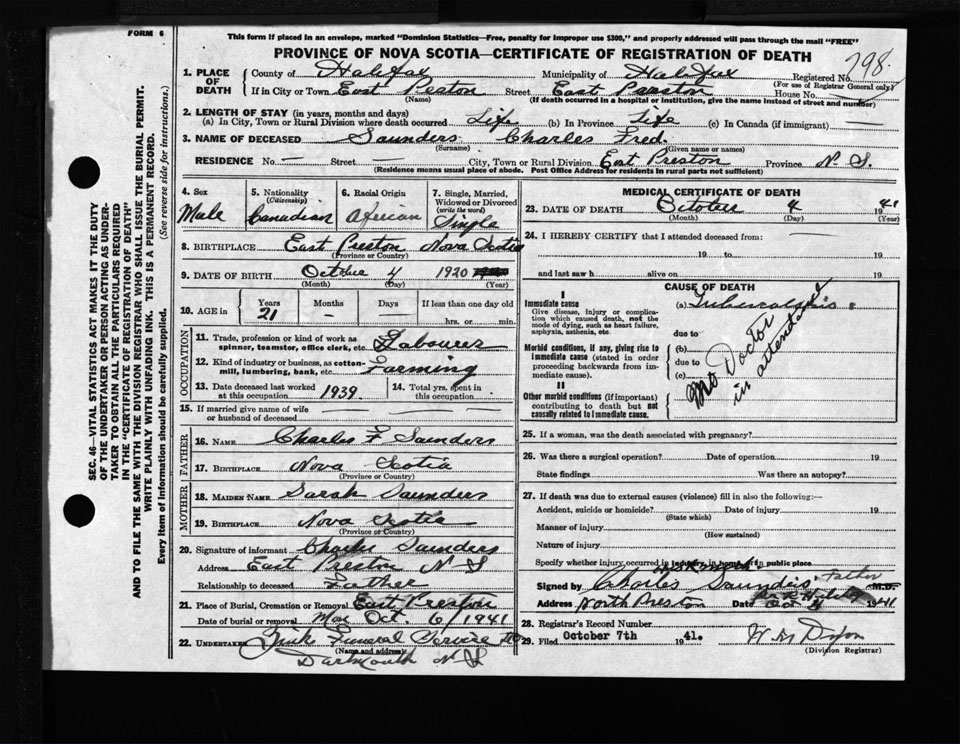 FORM 6
This form if placed in an envelope, marked "Dominion Statistics—Free, penalty for improper use $300," and properly addressed will pass through the mail "FREE"
PROVINCE OF NOVA SCOTIA—CERTIFICATE OF REGISTRATION OF DEATH
798
1. PLACE OF DEATH County of Halifax Municipality of Halifax Registered No.
(For use of Registrar General only)
If in City or Town East Preston Street East Preston House No.
(Name) (If death occurred in a hospital or institution, give the name instead of street and number)
2. LENGTH OF STAY (in years, months and days)
(a) In City, Town or Rural Division where death occurred Life (b) In Province Life (c) In Canada (if immigrant) —
3. NAME OF DECEASED Saunders Charles Fred
(Surname) (Given name or names)
RESIDENCE No. — Street — City, Town or Rural Division East Preston Province N. S.
(Residence means usual place of abode. Post Office Address for Residents in rural parts not sufficient)
SEC. 46—VITAL STATISTICS ACT MAKES IT THE DUTY
OF THE UNDERTAKER OR PERSON ACTING AS UNDER-
TAKER TO OBTAIN ALL THE PARTICULARS REQUIRED
IN THE "CERTIFICATE OF REGISTRATION OF DEATH"
AND TO FILE THE SAME WITH THE DIVISION REGISTRAR WHO SHALL ISSUE THE BURIAL PERMIT.
WRITE PLAINLY WITH UNFADING INK. THIS IS A PERMANENT RECORD.
Every item of Information should be carefully supplied. (See reverse side for instructions.)
4. Sex Male
5. Nationality (Citizenship) Canadian
6. Racial Origin African
7. Single, Married, Widowed or Divorced (write the word) Single
8. BIRTHPLACE East Preston Nova Scotia
(Province or Country)
9. DATE OF BIRTH October 4 1920
(Month) (Day) (Year)
10. AGE in Years 21 Months — Days — If less than one day old hrs. or min.
OCCUPATION
11. Trade, profession or kind of work as spinner, teamster, office clerk, etc. Labourer
12. Kind of industry or business, as cotton-mill, lumbering, bank, etc. Farming
13. Date deceased last worked at this occupation 1939 14. Total yrs. spent in this occupation
15. If married give name of wife or husband of deceased — — —
FATHER
16. NAME Charles F Saunders
17. BIRTHPLACE Nova Scotia
(Province or Country)
MOTHER
18. MAIDEN NAME Sarah Saunders
19. BIRTHPLACE Nova Scotia
(Province or Country)
20. Signature of informant Charles Saunders
Address East Preston N S
Relationship to deceased Father
21. Place of Burial, Cremation or Removal East Preston
Date of burial or removal Oct. 6/1941
22. UNDERTAKER Funeral Service
(Name and address)
Dartmouth N S
MEDICAL CERTIFICATE OF DEATH
23. DATE OF DEATH October 4 1941
(Month) (Day) (Year)
24. I HEREBY CERTIFY that I attended deceased from: —
19 to 19
and last saw h alive on 19
CAUSE OF DEATH
I
Immediate cause (a) Tuberculosis
Give disease, injury or complication which caused death, not the mode of dying, such as heart failure, asphyxia, asthenia, etc.
due to
Morbid conditions, if any, giving rise to immediate cause (stated in order proceeding backwards from immediate cause). (b)
due to
(c)
No Doctor
in attendance
II
Other morbid conditions (if important) contributing to death but not causally related to immediate cause.
25. If a woman, was the death associated with pregnancy?
26. Was there a surgical operation? Date of operation 19
State findings Was there an autopsy?
27. If death was due to external causes (violence) fill in also the following:—
Accident, suicide or homicide? Date of injury 19
(State which)
Manner of injury
(How sustained)
Nature of injury
Specify whether injury occurred in industry, in home, or in public place
Signed by Charles Saunders Father M.D.
Address North Preston Date Oct 1941
28. Registrar's Record Number
29. Filed October 7th 1941. W. M Dixon
(Division Registrar)